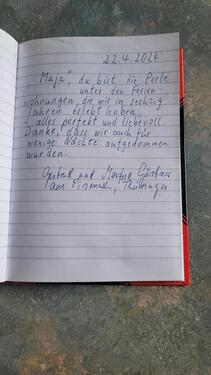 22.4.2024
"Maja", du bist die Perle
unter den Ferien-
wohnungen, die wir in sechzig
Jahren erlebt haben,
alles perfekt und liebevoll.
Danke, dass wir auch für
wenige Nächte aufgenommen
wurden.
und Gärtner
aus Eisenach, Thüringen